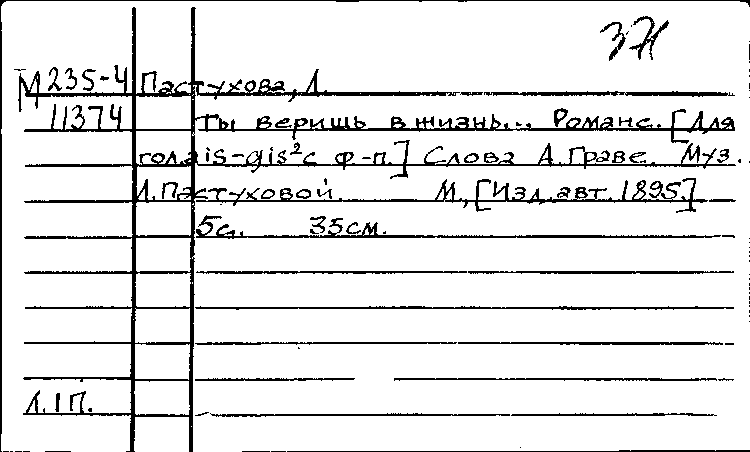 М 235-4 Пастухова, Л.
11374 Ты веришь в жизнь... Романс. [Для
гол. ais-gis² с ф-п.] Слова А. Граве. Муз.
Л. Пастуховой. М., [Изд. авт. 1895.]
5с. 35см.
Л. I П.